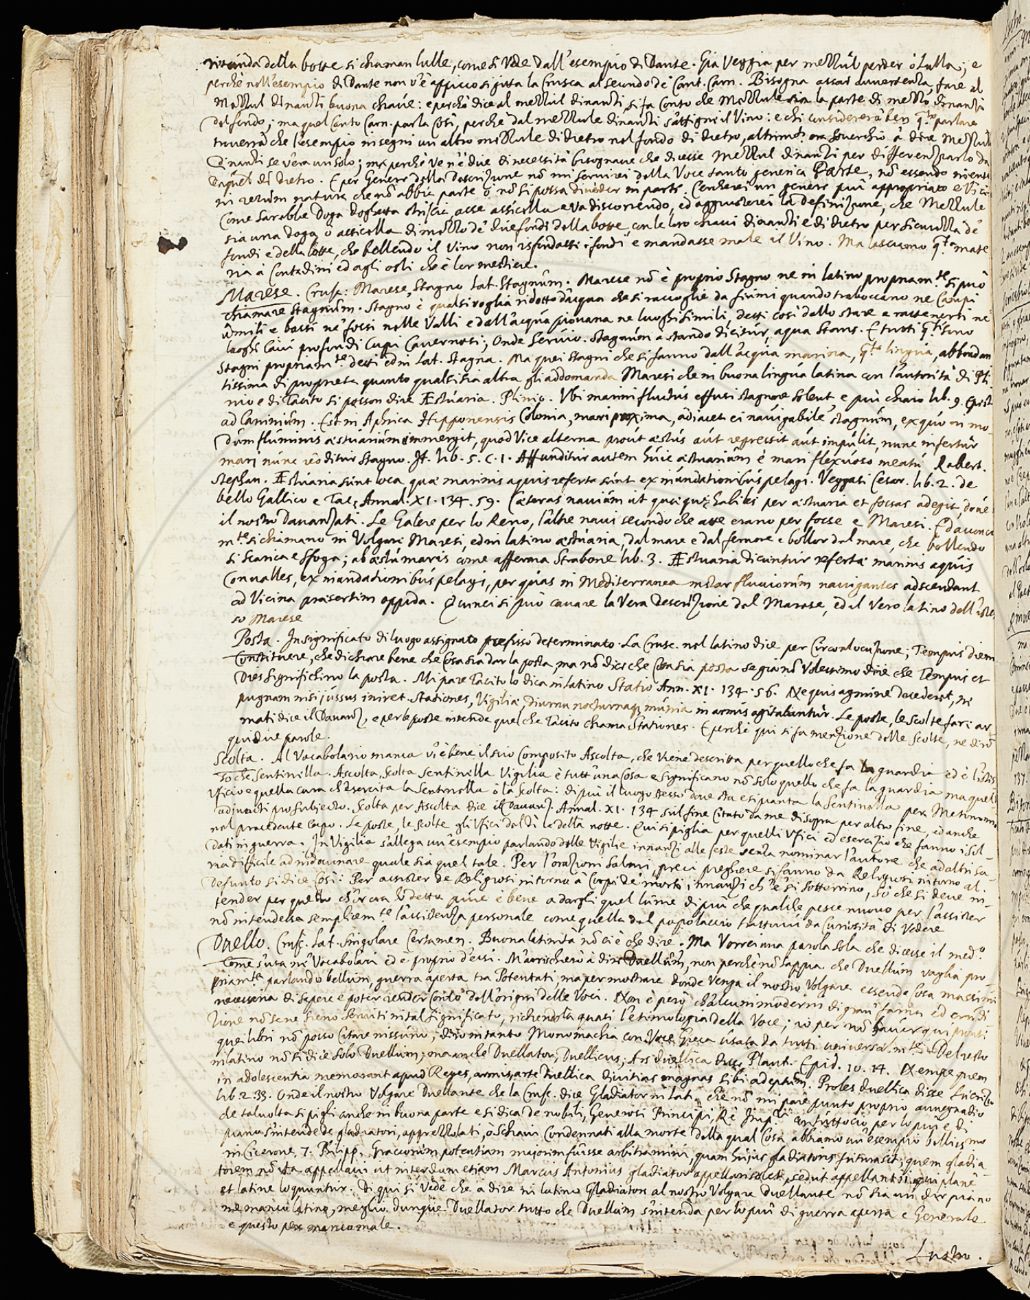 rotonda della botte si chiaman lulle, come si vede dall'esempio di Dante. Già Veggia per mezzul perder o Lulla; e
perchè nell'esempio di Dante non v'è appicco si gitta la Crusca al secondo de' Cant. Carn. Bisogna assai avvertenza, fare al
Mezzul dinanzi buona chiave: e perchè dice al mezzul dinanzi si fa conto che Mezzule sia la parte di mezzo dinanzi
del fondo; ma quel Canto Carn. parla così, perchè dal mezzule dinanzi s'attigne il Vino: e chi considererà ben q.to parlare
troverà che l'esempio insegni un altro mezzule di dietro nel fondo di dietro, altrim.ti era soverchio a dire Mezzule
dinanzi se v'era un solo; ma perchè ve n'è due di necessità bisognava che dicesse Mezzul dinanzi per differenziarlo da
quel di dietro. E per Genere della descrizione nō mi servirei della Voce tanto generica Parte, nō essendo niente
in rerum natura che nō abbia parte o nō si possa dividere in parte. Cercherei un genere più appropriato e Vicino
Come sarebbe Doga Doghetta striscia, asse assicella e va discorrendo, ed aggiusterei la definizione, che Mezzule
sia una doga, o assicella di mezzo de' due fondi della botte, con le loro chiavi dinanzi e di dietro per sicurezza de'
fondi e della botte, che bollendo il Vino non isfondasse i fondi e mandasse male il Vino. Ma lasciamo q.ta mate
ria a Contadini ed agli osti che è lor mestiere.
Marese. Crusc: Marese, Stagno Lat. Stagnum. Marese nō è proprio Stagno ne in latino propriam.te si può
chiamare Stagnum. Stagno è qualsivoglia ridotto d'acqua che si raccoglie da fiumi quando traboccano ne' Campi
umili e bassi ne' fossi nelle Valli e dall'acqua piovana ne luoghi simili detti così dallo stare e rattenersi ne'
luoghi cavi profondi Cupi Cavernosi; Onde Servio. Stagnum a stando dicitur, aqua stans. E tutti q.ti sono
Stagni propriam.te detti ed in Lat. Stagna. Ma quei stagni che si fanno dall'acqua marina, q.ta lingua, abbondan
tissima di proprietà quanto qualsisia altra, gli addomanda Maresi che in buona lingua latina con l'autorità di Pli
nio e di Tacito si posson dire Æstuaria. Plinio. Ubi manni fluctus effusi stagnare solent, e più chiaro lib. 9. Epist.
ad Caninium. Est in Africa Hipponensis Colonia, mari proxima, adiacet ei navigabile stagnum, ex quo in mo-
dum fluminis æstuarium emergit, quod Vice alterna prout æstus aut repressit aut impulit, nunc infertur
mari nunc redditur stagno. It. lib. 5. C. 1. Affunditur autem huic æstuarium è mari flexuoso meatu. Robert.
Stephan. Æstuaria sunt loca quæ marinis aquis referta sunt ex inundationibus pelagi. Veggasi Cesar. lib. 2. de
bello Gallico e Tac, Annal. XI. 134. 59. Cæteras navium ut quæque habiles per æstuaria et fossas adegit, dove
il nostro Davanzati. Le Galere per lo Reno, l'altre navi secondo che atte erano per fosse e Maresi.
si chiamano in Volgare Maresi, ed in latino æstuaria, dal mare e dal fervore e bollor del mare, che bollendo
si scarica e sfoga; ab æstu maris come afferma Strabone lib. 3. Æstuaria dicuntur referta marinis aquis
Convalles, ex inundationibus pelagi, per quas in Mediterranea instar fluviorum navigantes adscendunt
ad Vicina præsertim oppida. Quinci si può cavare la Vera descrizione del Marese, ed il Vero latino dell'istes
so Marese
Posta. In significato di luogo assignato prefisso determinato. La Crusc. nel latino dice per Circonlocuzione; Tempus diem
Constituere, che dichiara bene che Cosa sia dar la posta, ma nō dice che Cosa sia posta se già nō Volessimo dire che Tempus et
Dies significhino la posta. Mi pare Tacito lo dica in latino Statio Ann. XI. 134. 56. Ne quis agmine decederet, ne
pugnam nisi jussus iniret. Stationes, Vigiliæ, diurna nocturnaque munia in armis agitabantur. Le poste, le scolte fare ar-
mati dice il Davanz, e per le poste intende quel che Tacito chiama Stationes. E perchè qui si fa menzione delle scolte, ne dirò
qui due parole.
Scolta. Al Vocabolario manca v'è bene il suo Composito Ascolta, che viene descritta per quello che fa la guardia ed è l'istes
so che Sentinella. Ascolta, scolta Sentinella Vigilia è tutt'una cosa e significano nō solo quello che fa la guardia ma quell'
Ufficio e quella cura ch'esercita la Sentinella o la scolta: di più il luogo stesso ove sta et quanta la Sentinella per Metinomia
adjuncti pro subjecto. Scolta per Ascolta dice il Davanz. Annal. XI. 134 sul fine Citato da me disopra per altro fine, ed anche
nel precedente Capo. Le poste, le scolte gli Ufici del dì e della notte. Qui si piglia per quelli Ufici ed esercizio che fanno i Sol-
dati in guerra. In Vigilia s'allega un esempio parlando delle Vigilie innanzi alle feste senza nominar l'autore che ad altri sa
rà difficile ad indovinare quale sia quel tale. Per l'orazioni Salmi, preci preghiere si fanno da Religiosi intorno al
Defunto si dice così: Per assister de Religiosi intorno a' Corpi de' morti, innanzi ch'e' si sotterrino, sì che si deve in-
tender per quello ch'era Vedetta pure è bene a dargli quel lume di più che qualche pesce nuovo per l'assister
nō intendesse semplicem.te l'assistenza personale come quella del popolaccio trattovi da Curiosità di Vedere
Duello. Crusc. Lat. Singolare Certamen. Buona latinità nō ci è che dire. Ma Vorrei una parola sola che dicesse il med.o
Come s'usa ne' Vocabolari ed è proprio d'essi. M'arrischierò a dire Duellum, non perchè nō sappia che Duellum vaglia pro
priam.te parlando bellum, guerra aperta tra Potentati; ma per mostrare donde venga il nostro Volgare essendo cosa massima
necessaria di sapere e poter render conto dell'origin delle Voci. Nen è però ch'alcuni moderni di gran fama ed erudi
zione nō se ne sieno serviti in tal significato, richiedela quasi l'etimologia della Voce; io per nō haver qui pronti
que' libri nō posso Citare nissuno; diremo intanto Monomachia con Voce Greca usata da tutti universal.m.te. Del resto
in latino nō si dice solo Duellum; ma anche Duellator, Duellicus, Ars duellica Plaut. Epid. 10. 14. Nempe quem
in adolescentia memorant apud Reges, armis, arte Duellica divitias magnas sibi adeptum. Proles duellica disse Lucrezio
lib. 2. 33. Onde il nostro Volgare Duellante che la Crusc. dice Gladiator in Lat. che nō mi pare punto proprio avvegnadio
che talvolta si pigli anche in buona parte e si dica de nobili, Generosi Principi, Rè Imp.ri per lo più e di
piano s'intende de' gladiatori, apprezzolati, o schiavi condennati alla morte della qual Cosa abbiamo un esempio bellissimo
in Cicerone. 7. Philipp. Graccorum potentiam majorem fuisse arbitramini, quam hujus gladiatoris futura sit; quem gladia-
torem nō ita appellavi ut interdum etiam Marcus Antonius gladiator appellari solet, sed ut appellant ii qui plane
et latine loquuntur. Di qui si Vede che a dire in latino Gladiator al nostro Volgare Duellante nō sia un dir piano
nemanco latino, meglio dunque Duellator tutto che Duellum s'intenda per lo più di guerra aperta e Generale
e questo per manco male.
Lustro.